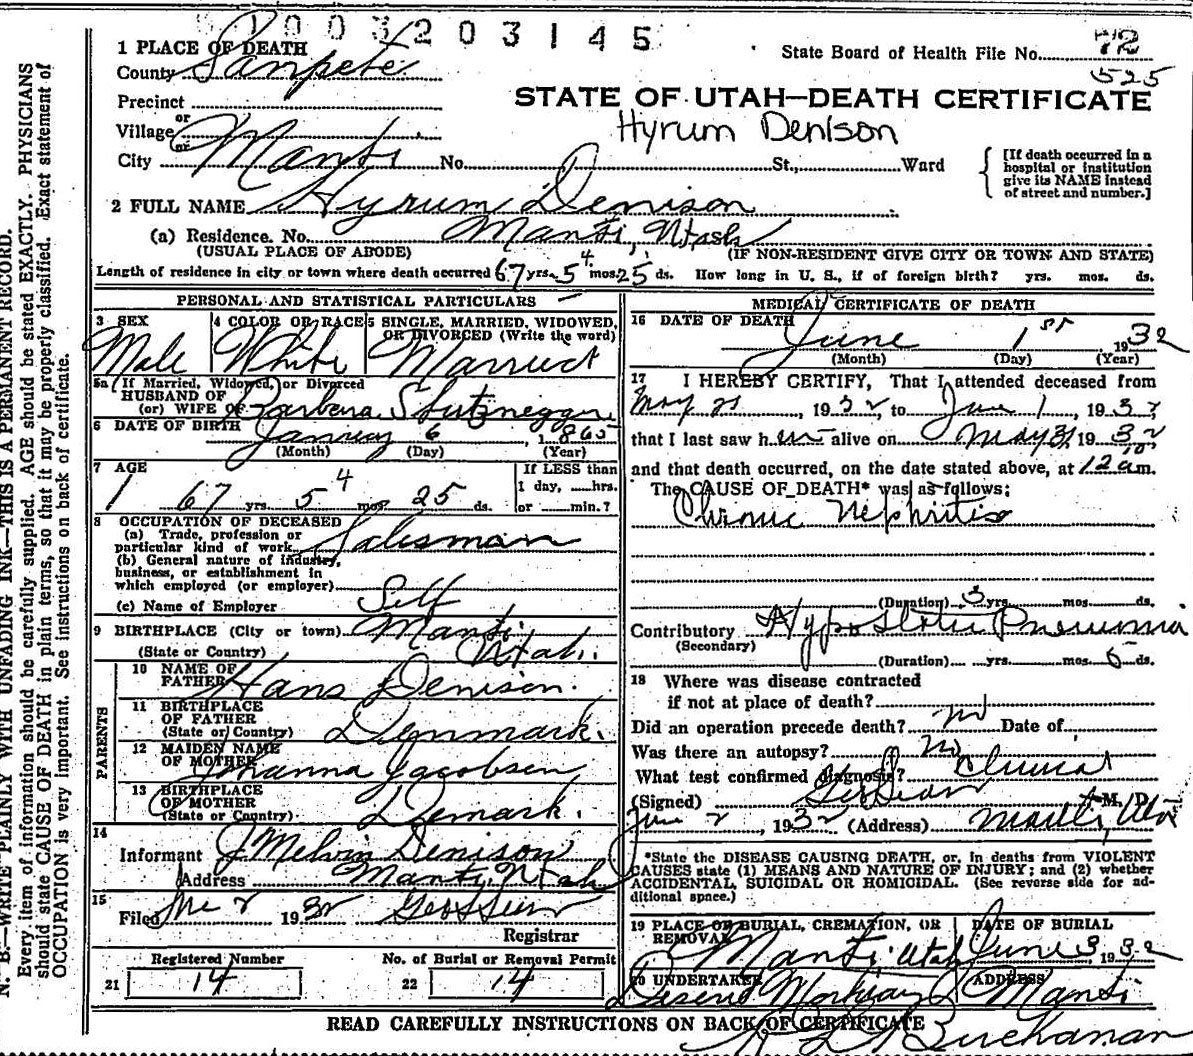 1003203145
1 PLACE OF DEATH
State Board of Health File No. 72
County Sanpete
525
Precinct
STATE OF UTAH—DEATH CERTIFICATE
or
Village
Hyrum Denison
or
City Manti No. St., Ward
[If death occurred in a
hospital or institution
give its NAME instead
of street and number.]
2 FULL NAME Hyrum Denison
(a) Residence. No. Manti, Utah
(USUAL PLACE OF ABODE) (IF NON-RESIDENT GIVE CITY OR TOWN AND STATE)
Length of residence in city or town where death occurred 67 yrs. 5 4 mos. 25 ds. How long in U. S., if of foreign birth? yrs. mos. ds.
PERSONAL AND STATISTICAL PARTICULARS
3 SEX 4 COLOR OR RACE 5 SINGLE, MARRIED, WIDOWED,
OR DIVORCED (Write the word)
Male White Married
5a If Married, Widowed, or Divorced
HUSBAND OF
(or) WIFE OF Barbera
6 DATE OF BIRTH January 6, 1865
(Month) (Day) (Year)
7 AGE If LESS than
1 day, hrs.
67 yrs. 5 4 mos. 25 ds. or min.?
8 OCCUPATION OF DECEASED
(a) Trade, profession or
particular kind of work Salesman
(b) General nature of industry,
business, or establishment in
which employed (or employer)
(c) Name of Employer Self
9 BIRTHPLACE (City or town) Manti
(State or Country) Utah.
PARENTS
10 NAME OF
FATHER Hans Denison.
11 BIRTHPLACE
OF FATHER
(State or Country) Denmark.
12 MAIDEN NAME
OF MOTHER Johanna Jacobsen
13 BIRTHPLACE
OF MOTHER
(State or Country) Demark.
14
Informant J Melvin Denison
Address Manti, Utah
15
Filed 2 1932
Registrar
Registered Number No. of Burial or Removal Permit
21 14 22 14
MEDICAL CERTIFICATE OF DEATH
16 DATE OF DEATH June 1st 1932
(Month) (Day) (Year)
17 I HEREBY CERTIFY, That I attended deceased from
May 21, 1932, to June 1, 1932
that I last saw him alive on May 31 1932
and that death occurred, on the date stated above, at 12 10 am.
The CAUSE OF DEATH* was as follows:
Chronic Nephritis
(Duration) 3 yrs. mos. ds.
Contributory Hypostatic Pneumonia
(Secondary)
(Duration) yrs. mos. 5 ds.
18 Where was disease contracted
if not at place of death?
Did an operation precede death? no Date of
Was there an autopsy? no
What test confirmed diagnosis? Clinical
(Signed) M. D.
June 2, 1932 (Address) Manti, Utah
*State the DISEASE CAUSING DEATH, or, in deaths from VIOLENT
CAUSES state (1) MEANS AND NATURE OF INJURY; and (2) whether
ACCIDENTAL, SUICIDAL OR HOMICIDAL. (See reverse side for ad-
ditional space.)
19 PLACE OF BURIAL, CREMATION, OR
REMOVAL DATE OF BURIAL
Manti Utah June 3 1932
20 UNDERTAKER ADDRESS
Deseret Mortuary Manti
READ CAREFULLY INSTRUCTIONS ON BACK OF CERTIFICATE
Buchanan
N. B.—WRITE PLAINLY WITH UNFADING INK—THIS IS A PERMANENT RECORD.
Every item of information should be carefully supplied. AGE should be stated EXACTLY. PHYSICIANS
should state CAUSE OF DEATH in plain terms, so that it may be properly classified. Exact statement of
OCCUPATION is very important. See instructions on back of certificate.